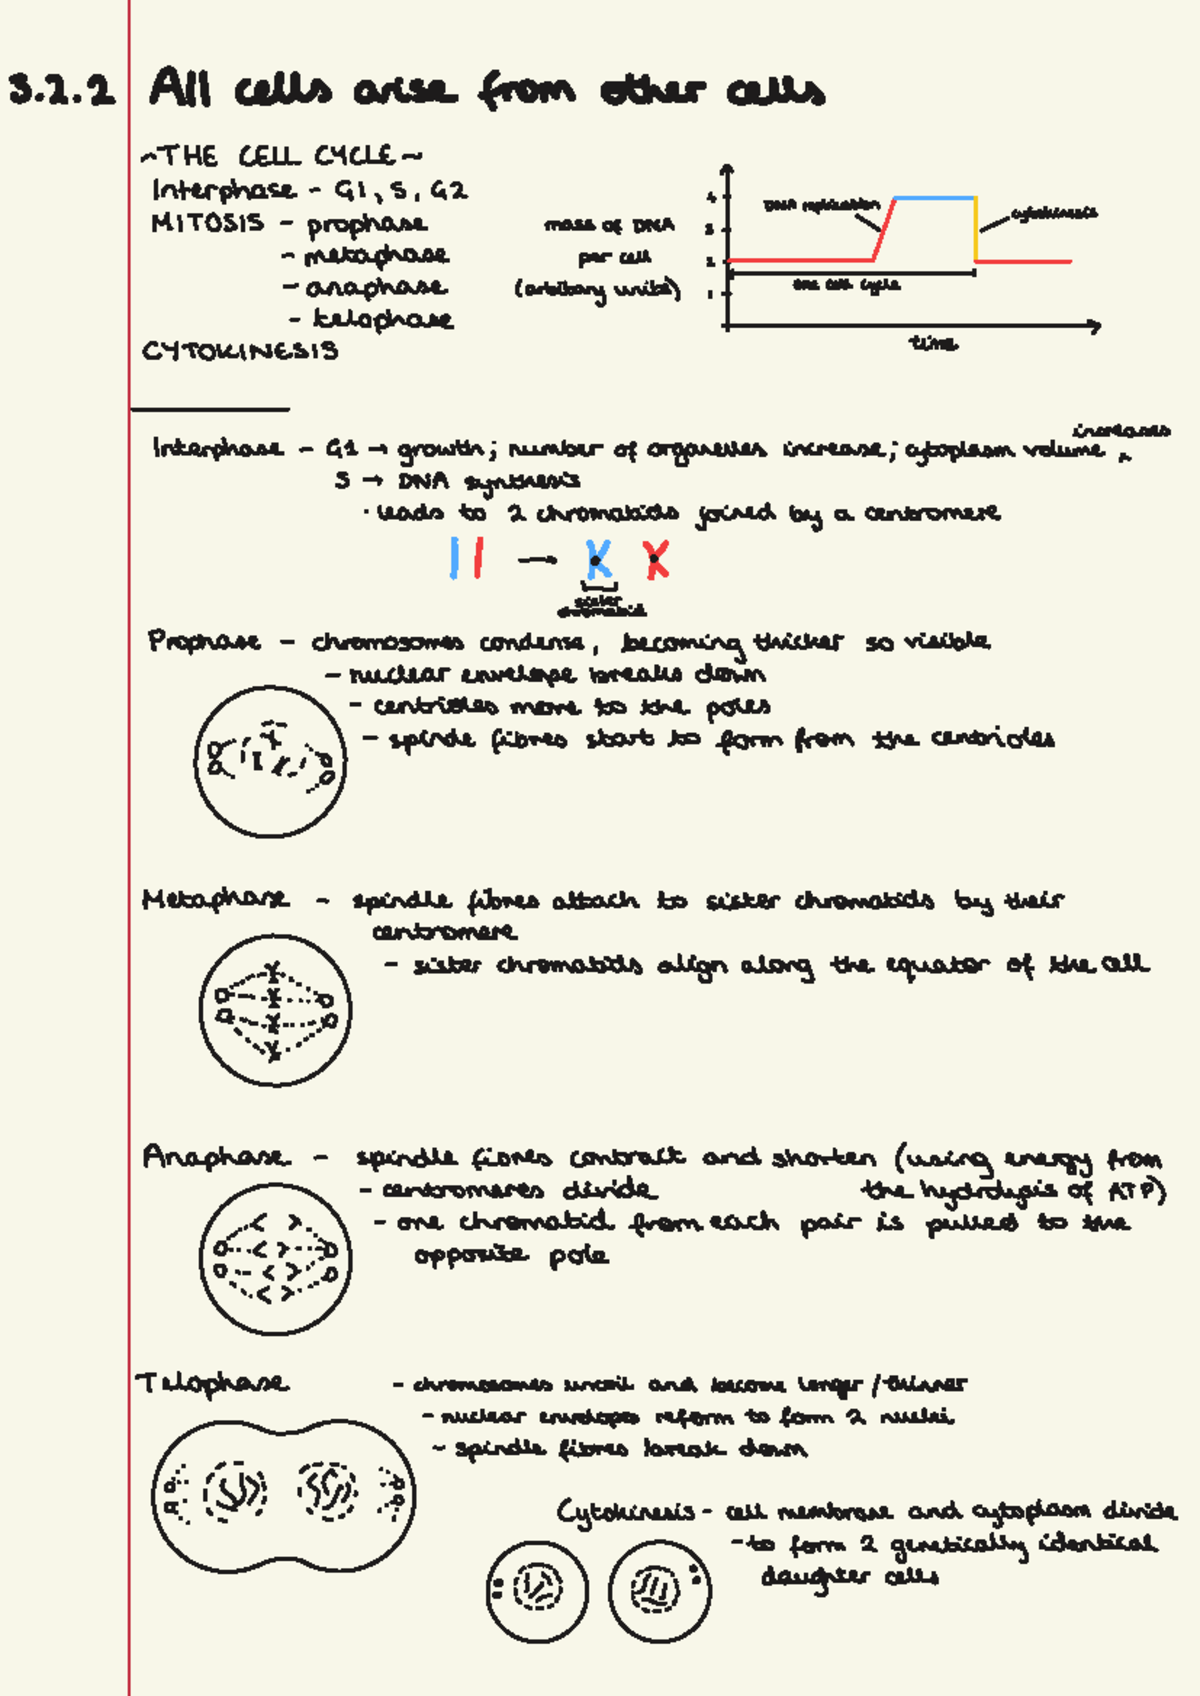 3.2.2 All cells arise from other cells
~THE CELL CYCLE~
Interphase - G1, S, G2
MITOSIS - prophase
- metaphase
- anaphase
- telophase
CYTOKINESIS
mass of DNA
per cell
(arbitary units)
4
3
2
1
DNA replication
cytokinesis
one cell cycle
time
increases
Interphase - G1 → growth; number of organelles increase; cytoplasm volume ^
S → DNA synthesis
· leads to 2 chromatids joined by a centromere
→
sister
chromatid
Prophase - chromosomes condense, becoming thicker so visible
- nuclear envelope breaks down
- centrioles move to the poles
- spindle fibres start to form from the centrioles
Metaphase - spindle fibres attach to sister chromatids by their
centromere
- sister chromatids align along the equator of the cell
Anaphase - spindle fibres contract and shorten (using energy from
- centromeres divide the hydrolysis of ATP)
- one chromatid from each pair is pulled to the
opposite pole
Telophase - chromosomes uncoil and become longer/thinner
- nuclear envelopes reform to form 2 nuclei
- spindle fibres break down
Cytokinesis - cell membrane and cytoplasm divide
- to form 2 genetically identical
daughter cells